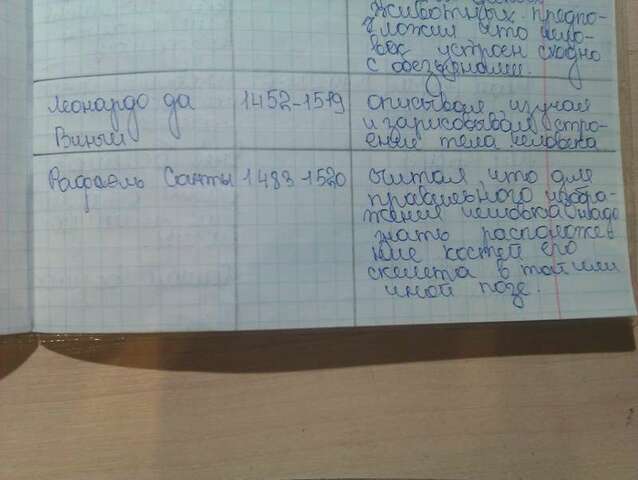 животных. предпо-
ложил что чело-
век устроен сходно
с обезьянами.
Леонардо да
Винчи
1452-1519
описывал, изучал
и зарисовывал стро-
ение тела человека
Рафаель Санты
1483-1520
считал, что для
правильного изобра-
жения человека надо
знать расположе
ние костей его
скелета в той или
иной позе.